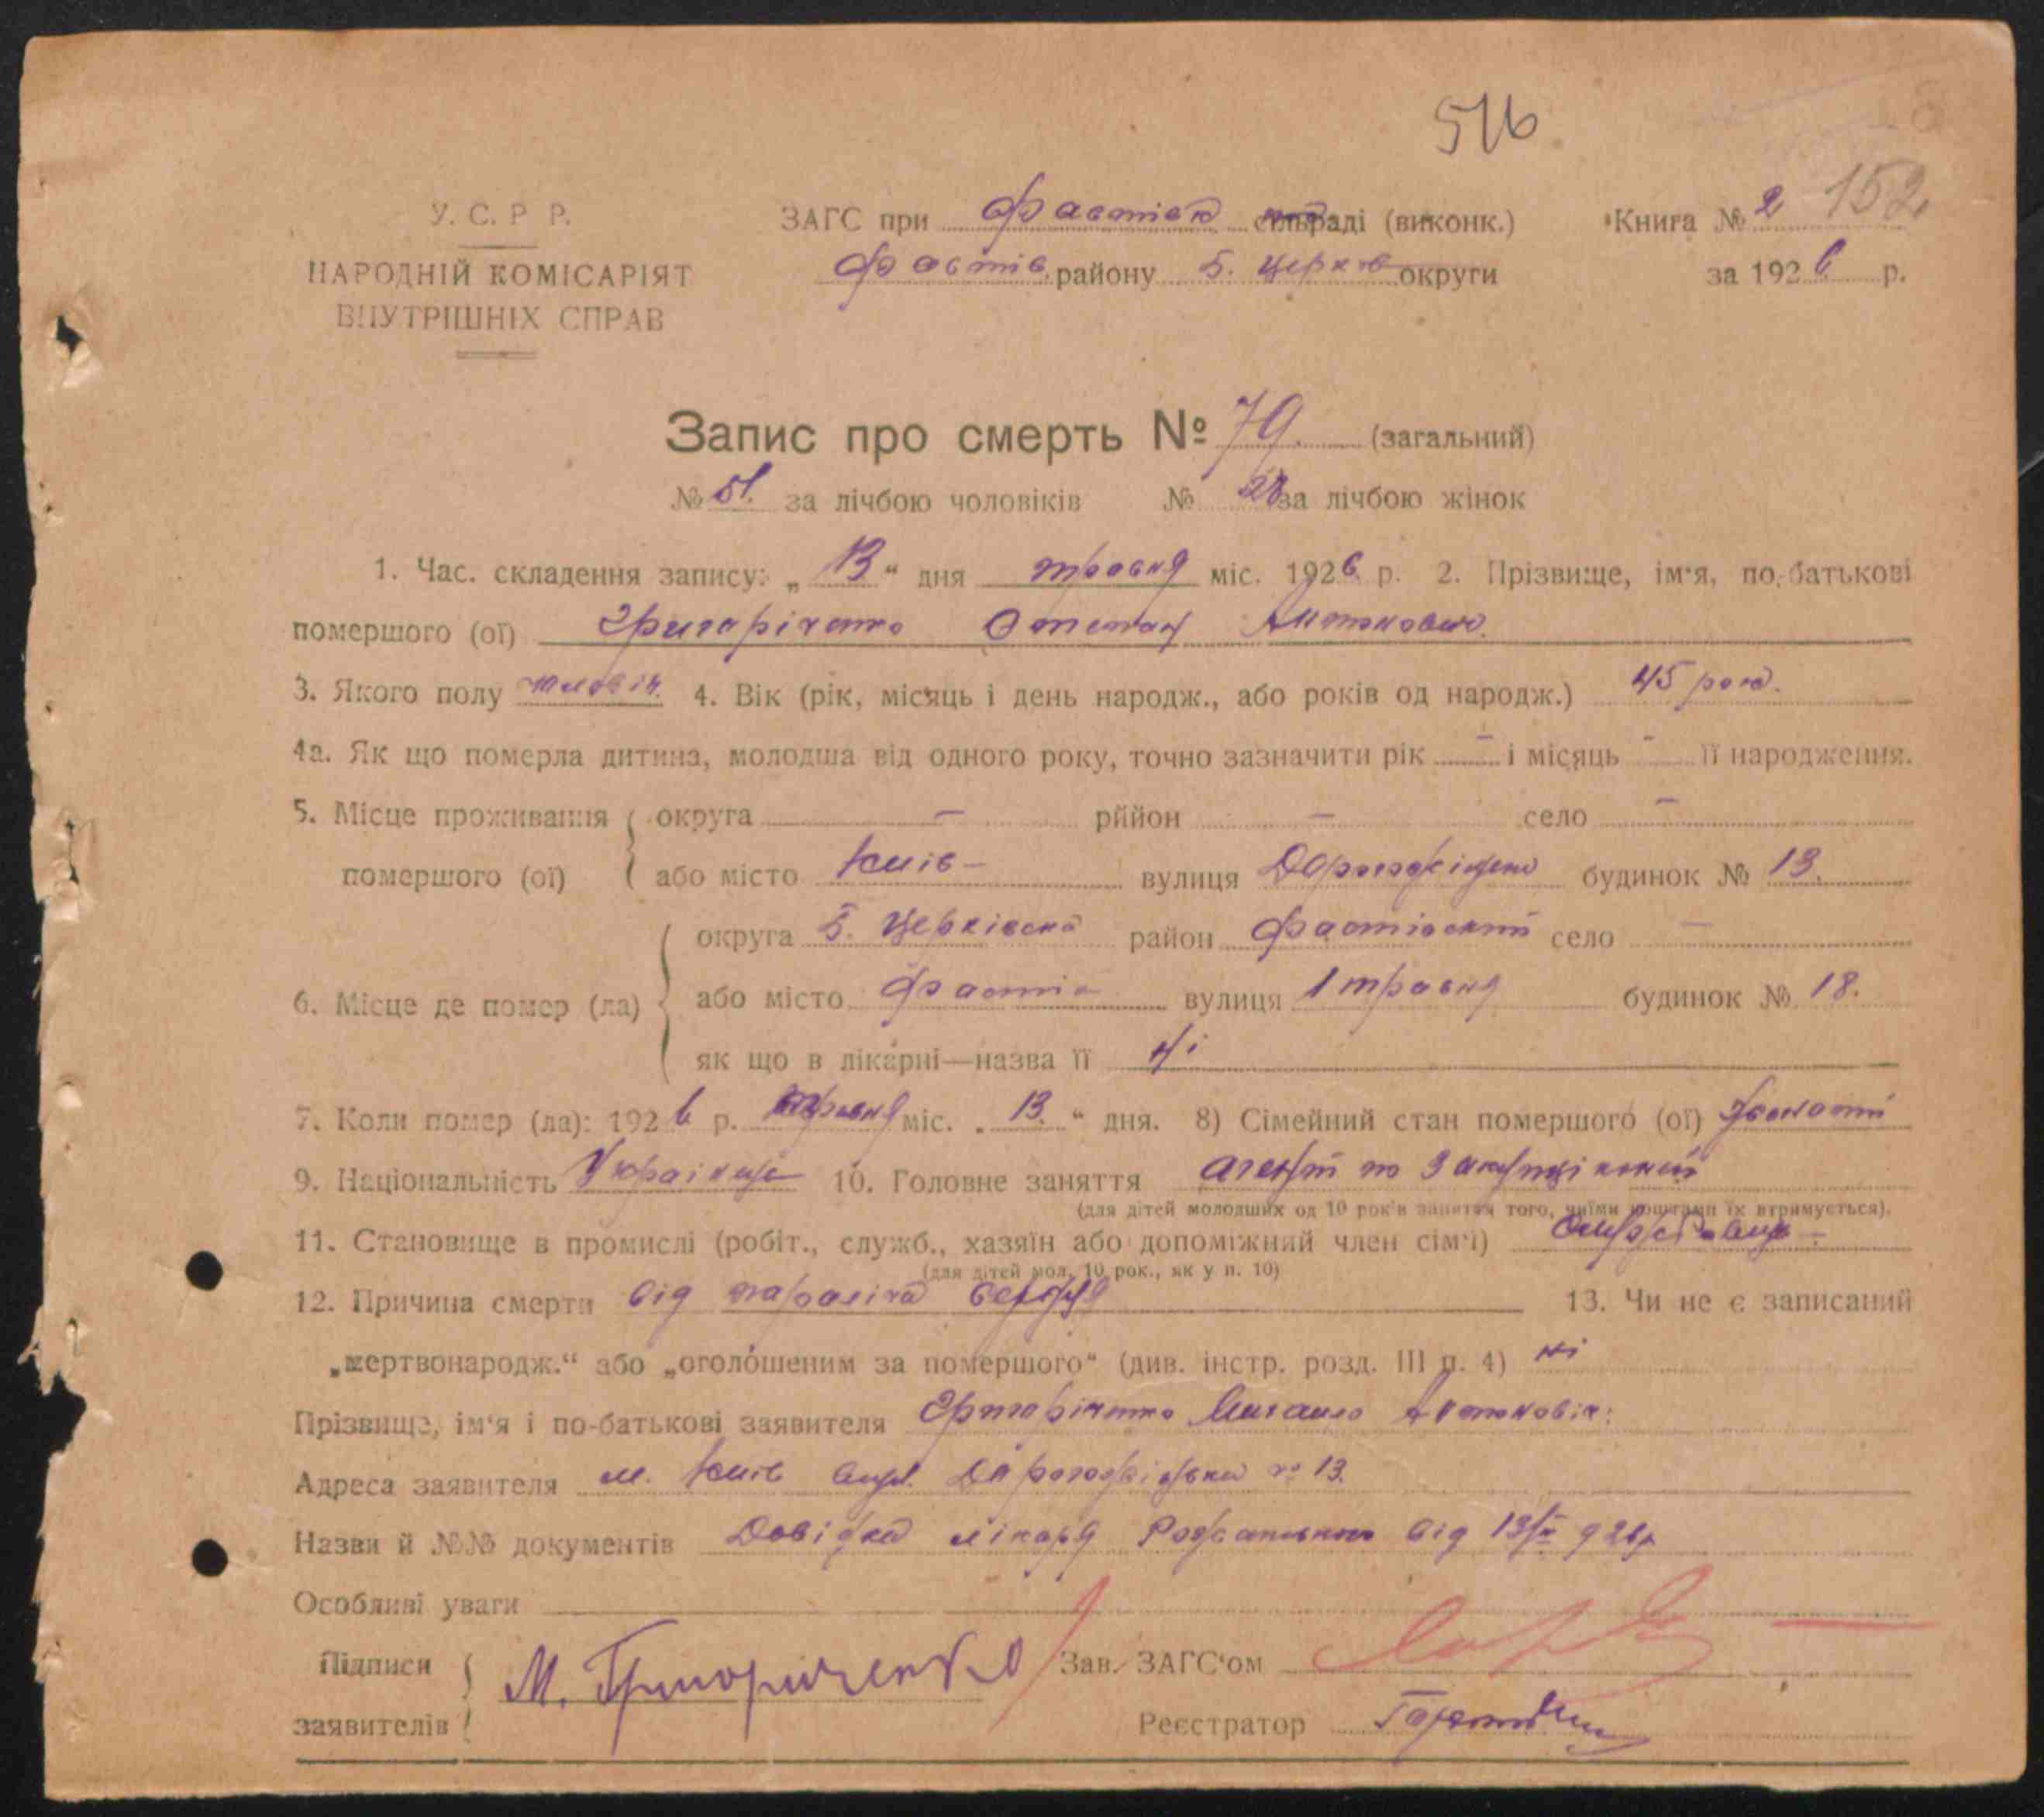 516
У. С. Р Р.
НАРОДНІЙ КОМІСАРІЯТ
ВНУТРІШНІХ СПРАВ
ЗАГС при Фастівск сільраді (виконк.)
Фастів. району Б. Церків округи
Книга № 2 152
за 1926 р.
Запис про смерть № 79. (загальний)
№ 51. за лічбою чоловіків № 28 за лічбою жінок
1. Час. складення запису: „ 13 “ дня травня міс. 1926 р. 2. Прізвище, ім‘я, по-батькові
помершого (ої) Григоріченко Степан Антонович.
3. Якого полу чоловіч. 4. Вік (рік, місяць і день народж., або років од народж.) 45 рок.
4а. Як що померла дитина, молодша від одного року, точно зазначити рік – і місяць – її народження.
5. Місце проживання помершого (ої) { округа – рйион – село –
або місто Київ – вулиця Дорогожіцька будинок № 13.
6. Місце де помер (ла) { округа Б. Церківська район Фастівський село –
або місто Фастів вулиця 1 травня будинок № 18.
як що в лікарні—назва її ні
7. Коли помер (ла): 1926 р. травня міс. „ 13. “ дня. 8) Сімейний стан помершого (ої) жонатий
9. Національність Українец 10. Головне заняття агент по
(для дітей молодших од 10 рок‘в заняття того, чиїми коштами їх втримується).
11. Становище в промислі (робіт., служб., хазяїн або допоміжний член сім‘ї) службовець –
(для дітей мол. 10 рок., як у п. 10)
12. Причина смерти від параліча серця 13. Чи не є записаний
„мертвонародж.“ або „оголошеним за помершого“ (див. інстр. розд. III п. 4) ні
Прізвище, ім‘я і по-батькові заявителя Григоріченко Михаило Антоновіч.
Адреса заявителя м. Київ вул. Дорогожіцька № 13.
Назви й №№ документів Довідка лікаря від 13/V 926р
Особливі уваги
Підписи заявителів { М. Григориченко Зав. ЗАГС‘ом
Реєстратор